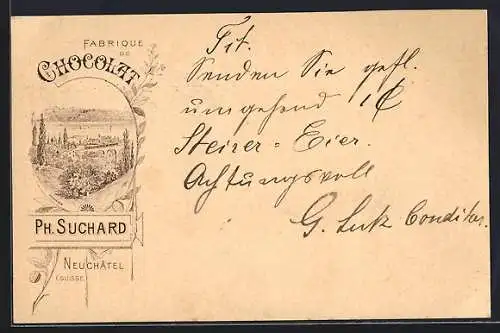 FABRIQUE
DE
CHOCOLAT
PH. SUCHARD
NEUCHÂTEL
(SUISSE)
Tit.
Senden Sie gefl.
umgehend 1
Steirer = Eier.
Achtungsvoll
G. Lutz Conditor.